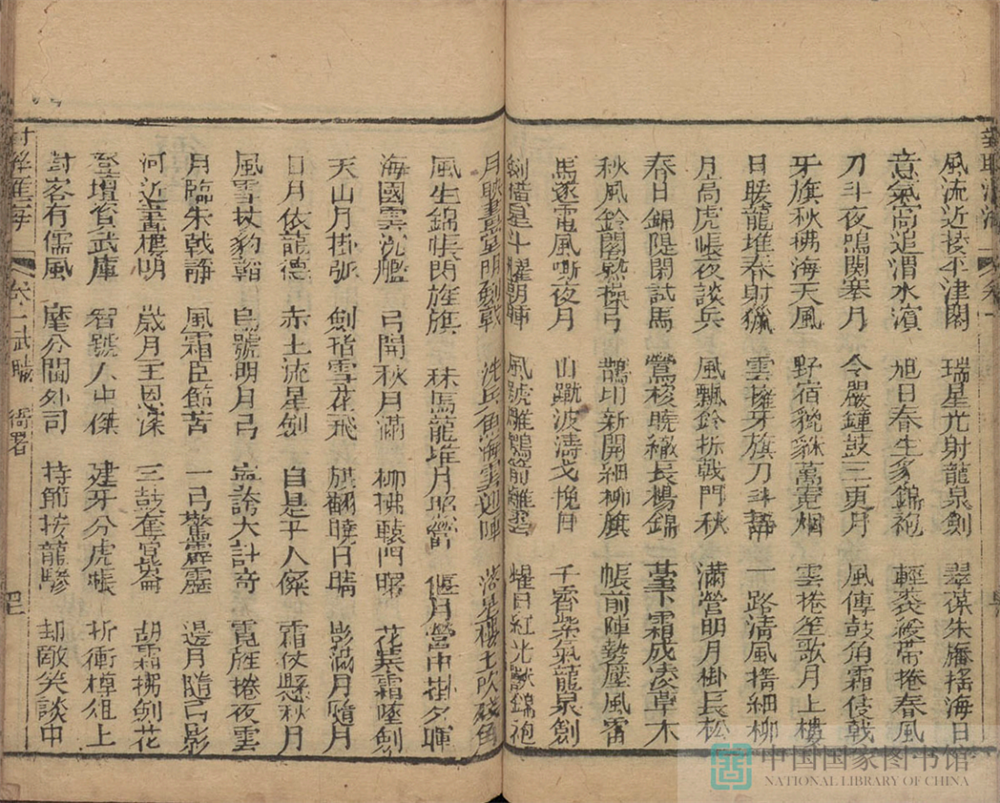 風流近接平津閣 瑞星光射龍泉劍 翠葆朱旛搖海日
意氣尚追渭水濱 旭日春生豸錦袍 輕裘緩帶捲春風
刀斗夜鳴関塞月 令嚴鐘鼓三更月 風傳鼓角霜侵戟
牙旗秋拂海天風 野宿貔貅萬竃烟 雲捲笙歌月上樓
日暖龍堆春射獵 雲擁牙旗刀斗靜 一路清風搖細柳
月高虎帳夜談兵 風飄鈴折戟門秋 滿營明月掛長松
春日錦隄閑試馬 鶯梭曉織長楊錦 臺下霜成凌草木
秋風鈴閣熟操弓 鵲印新開細柳旗 帳前陣勢壓風雷
馬逐電風嘶夜月 山蹴波濤戈挽日 千霄紫氣龍泉劍
劍橫星斗耀朝暉 風號雕鶚箭離 耀日紅光獸錦袍
月映畫堂明劍戟 洗兵魚海雲迎陣 樓上吹殘角
風生錦帳閃旌旗 秣馬龍堆月照營 偃月營中掛夕暉
海國雲沈艦 弓開秋月滿 柳拂轅門曙 花 霜墮劍
天山月掛弧 劍 雪花飛 旗翻曉日晴 影滿月隨月
日月依龍德 赤土流星劍 自是平人傑 霜仗懸秋月
風雪扙豹韜 烏號明月弓 寧誇大計奇 霓旌捲夜雲
月臨朱戟靜 風霜臣節苦 一弓驚霹靂 邊月隨弓影
河近畫樓明 歲月主恩深 三鼓奪崑崙 胡霜拂劍花
登壇資武庫 智號人中傑 建牙分虎帳 折衝樽俎上
封客有儒風 麾分閫外司 持節按龍驂 却敵笑談中
卷一武職 衙署 四
中国国家图书馆
NATIONAL LIBRARY OF CHINA